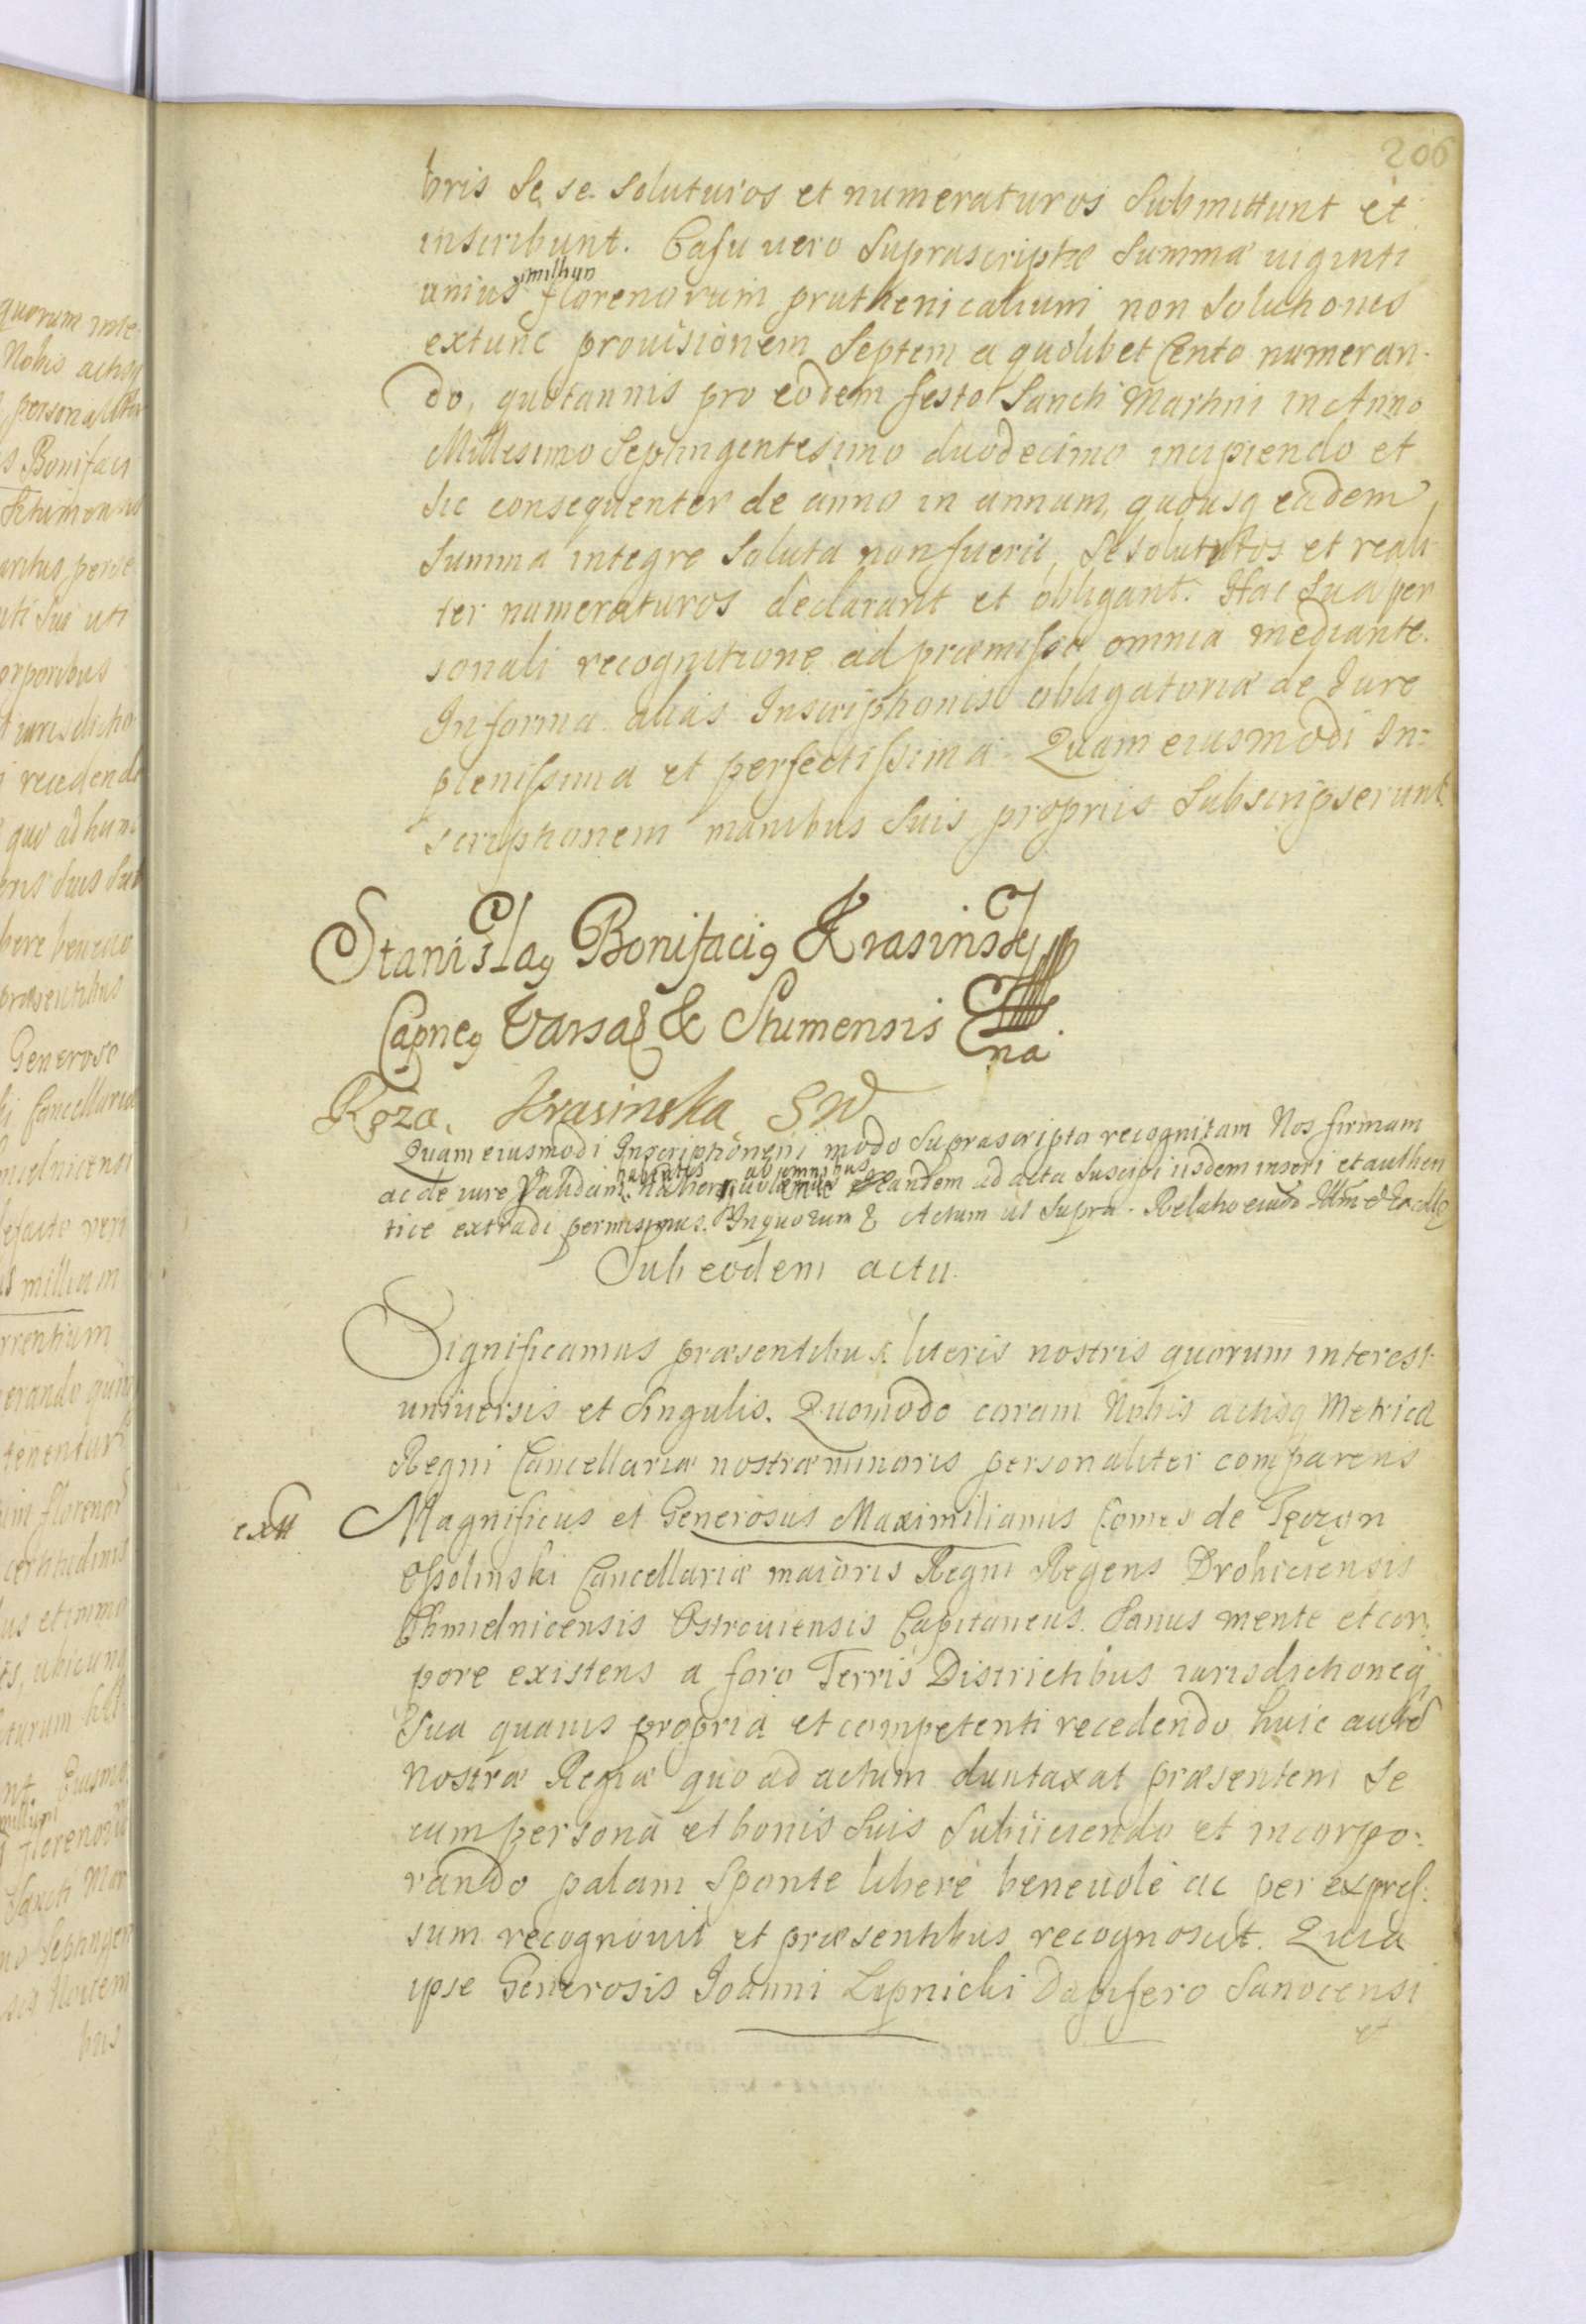 206
bris se, se soluturos et numeraturos submittunt et
inscribunt. Casu vero suprascriptæ summæ viginti
unius millium florenorum pruthenicalium non solutionis
extunc prouisionem septem a quolibet Cento numeran-
do, quotannis pro eodem festo Sancti Martini in Anno
Millesimo Septingentesimo duodecimo incipiendo et
sic consequenter de anno in annum, quousq eadem
summa integre soluta non fuerit, se soluturos et reali
ter numeraturos declarant et obligant. Hac sua per
sonali recognitione ad præmissa omnia mediante.
In forma alias Inscriptionis obligatoriæ de Jure
plenissima et perfectissima. Quam eiusmodi In-
scriptionem manibus suis propriis subscripserunt.
Stanislag Bonifacig Krasinsky
Capneg Varsa & Stumensis
na
Roza. Krasinska SW
Quam eiusmodi Inscriptionem modo suprascripto recognitam Nos firmam
ac de iure validam ab omnibus eandem ad acta suscipi iisdem inseri et authen
tice extradi permisimus. In quorum & Actum ut supra. Relatio
Sub eodem actu.
Significamus præsentibus literis nostris quorum interest
universis et singulis. Quomodo coram Nobis actisq Metrica
Regni Cancellariæ nostræ minoris personaliter comparens
extt Magnificus et Generosus Maximilianus Comes de Tęczyn
Ossolinski Cancellariæ maioris Regni Regens Drohiciensis
Chmielnicensis Ostroviensis Capitaneus. Sanus mente et cor-
pore existens a foro Terris Districtibus iurisdictioneq
sua quauis propria et competenti recedendo huic autẽ
Nostræ Regiæ quo ad actum duntaxat præsentem se
cum persona et bonis suis subiiciendo et incorpo-
rando palam sponte libere beneuole ac per expres-
sum recognouit et præsentibus recognoscit. Quia
ipse Generosis Joanni Lipnicki Dapifero Sanocensi
et